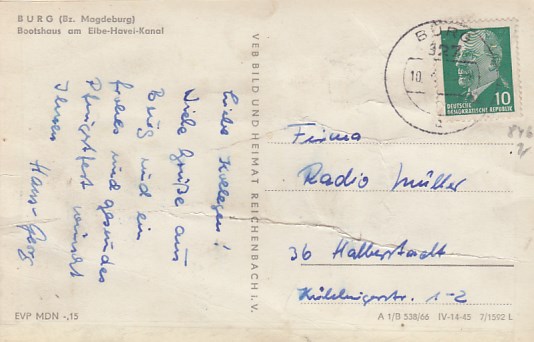 BURG (Bz. Magdeburg)
Bootshaus am Elbe-Havel-Kanal
Liebe Kollegen!
Viele Grüße aus
Burg und ein
frohes und gesundes
Pfingstfest wünscht
Ihnen Hans-Georg
EVP MDN -,15
VEB BILD UND HEIMAT REICHENBACH I. V.
BURG
327
10
DEUTSCHE
DEMOKRATISCHE REPUBLIK
10
Firma
Radio Müller
36 Halberstadt
1-2
A 1/B 538/66 IV-14-45 7/1592 L